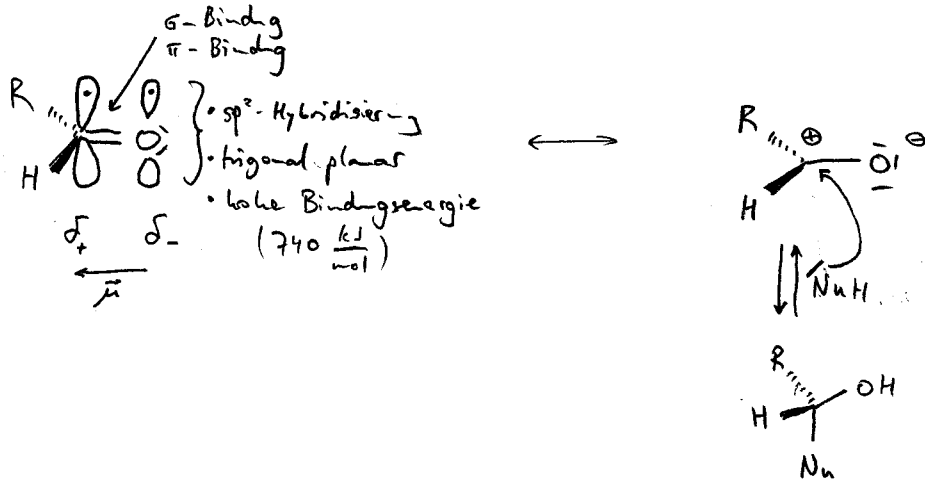 σ-Bindung
π-Bindung
R
H
O
• sp²-Hybridisierung
• trigonal planar
• hohe Bindungsenergie
(740 kJ/mol)
δ+ δ-
μ
R
H
⊕
O
⊖
NuH
R
H
OH
Nu